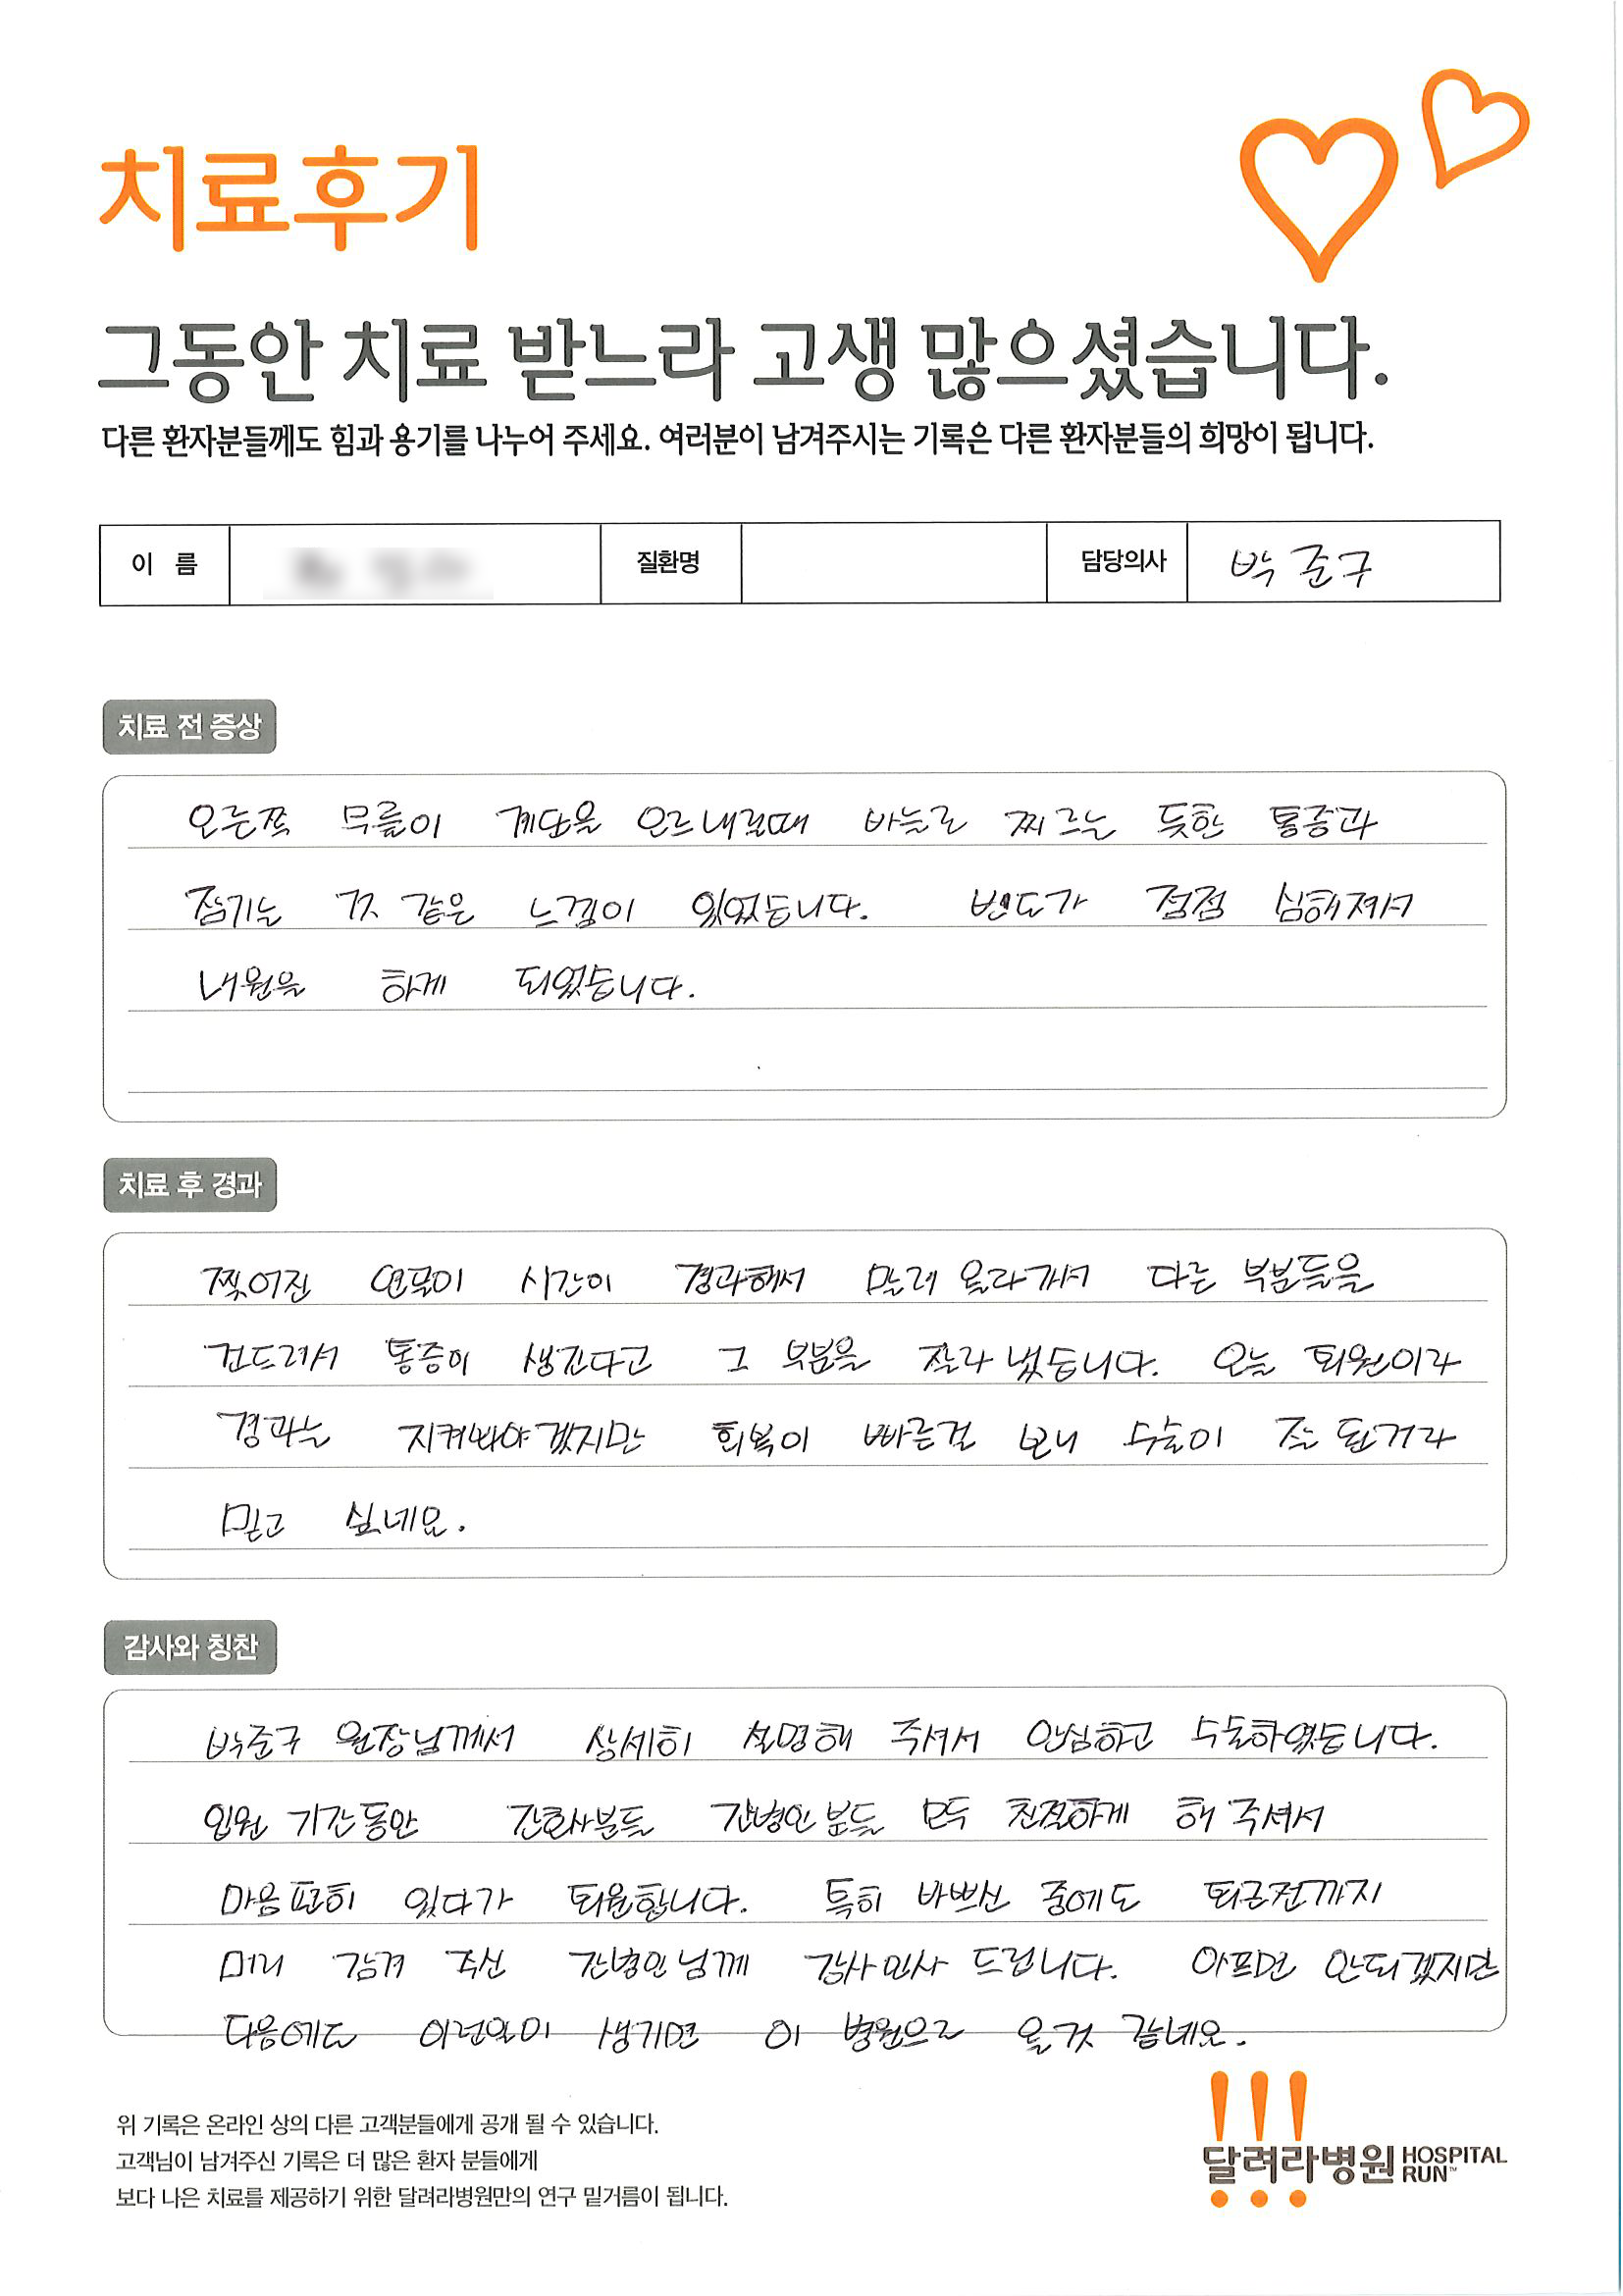 치료후기
그동안 치료 받느라 고생 많으셨습니다.
다른 환자분들께도 힘과 용기를 나누어 주세요. 여러분이 남겨주시는 기록은 다른 환자분들의 희망이 됩니다.
이 름 질환명 담당의사 박준구
치료 전 증상
오른쪽 무릎이 계단을 오르내릴때 바늘로 찌르는 듯한 통증과
잠기는 것 같은 느낌이 있었습니다. 빈도가 점점 심해져서
내원을 하게 되었습니다.
치료 후 경과
찢어진 연골이 시간이 경과해서 말려 올라가서 다른 부분들을
건드려서 통증이 생긴다고 그 부분을 잘라 냈습니다. 오늘 퇴원이라
경과는 지켜봐야겠지만 회복이 빠른걸 보니 수술이 잘 된거라
믿고 싶네요.
감사와 칭찬
박준구 원장님께서 상세히 설명해 주셔서 안심하고 수술하였습니다.
입원 기간동안 간호사분들 간병인 분들 모두 친절하게 해 주셔서
마음 편히 있다가 퇴원합니다. 특히 바쁘신 중에도 퇴근전까지
머리 감겨 주신 간병인님께 감사인사 드립니다. 아프면 안되겠지만
다음에도 이런일이 생기면 이 병원으로 올것 같네요.
위 기록은 온라인 상의 다른 고객분들에게 공개 될 수 있습니다.
고객님이 남겨주신 기록은 더 많은 환자 분들에게
보다 나은 치료를 제공하기 위한 달려라병원만의 연구 밑거름이 됩니다.
달려라병원 HOSPITAL RUN™